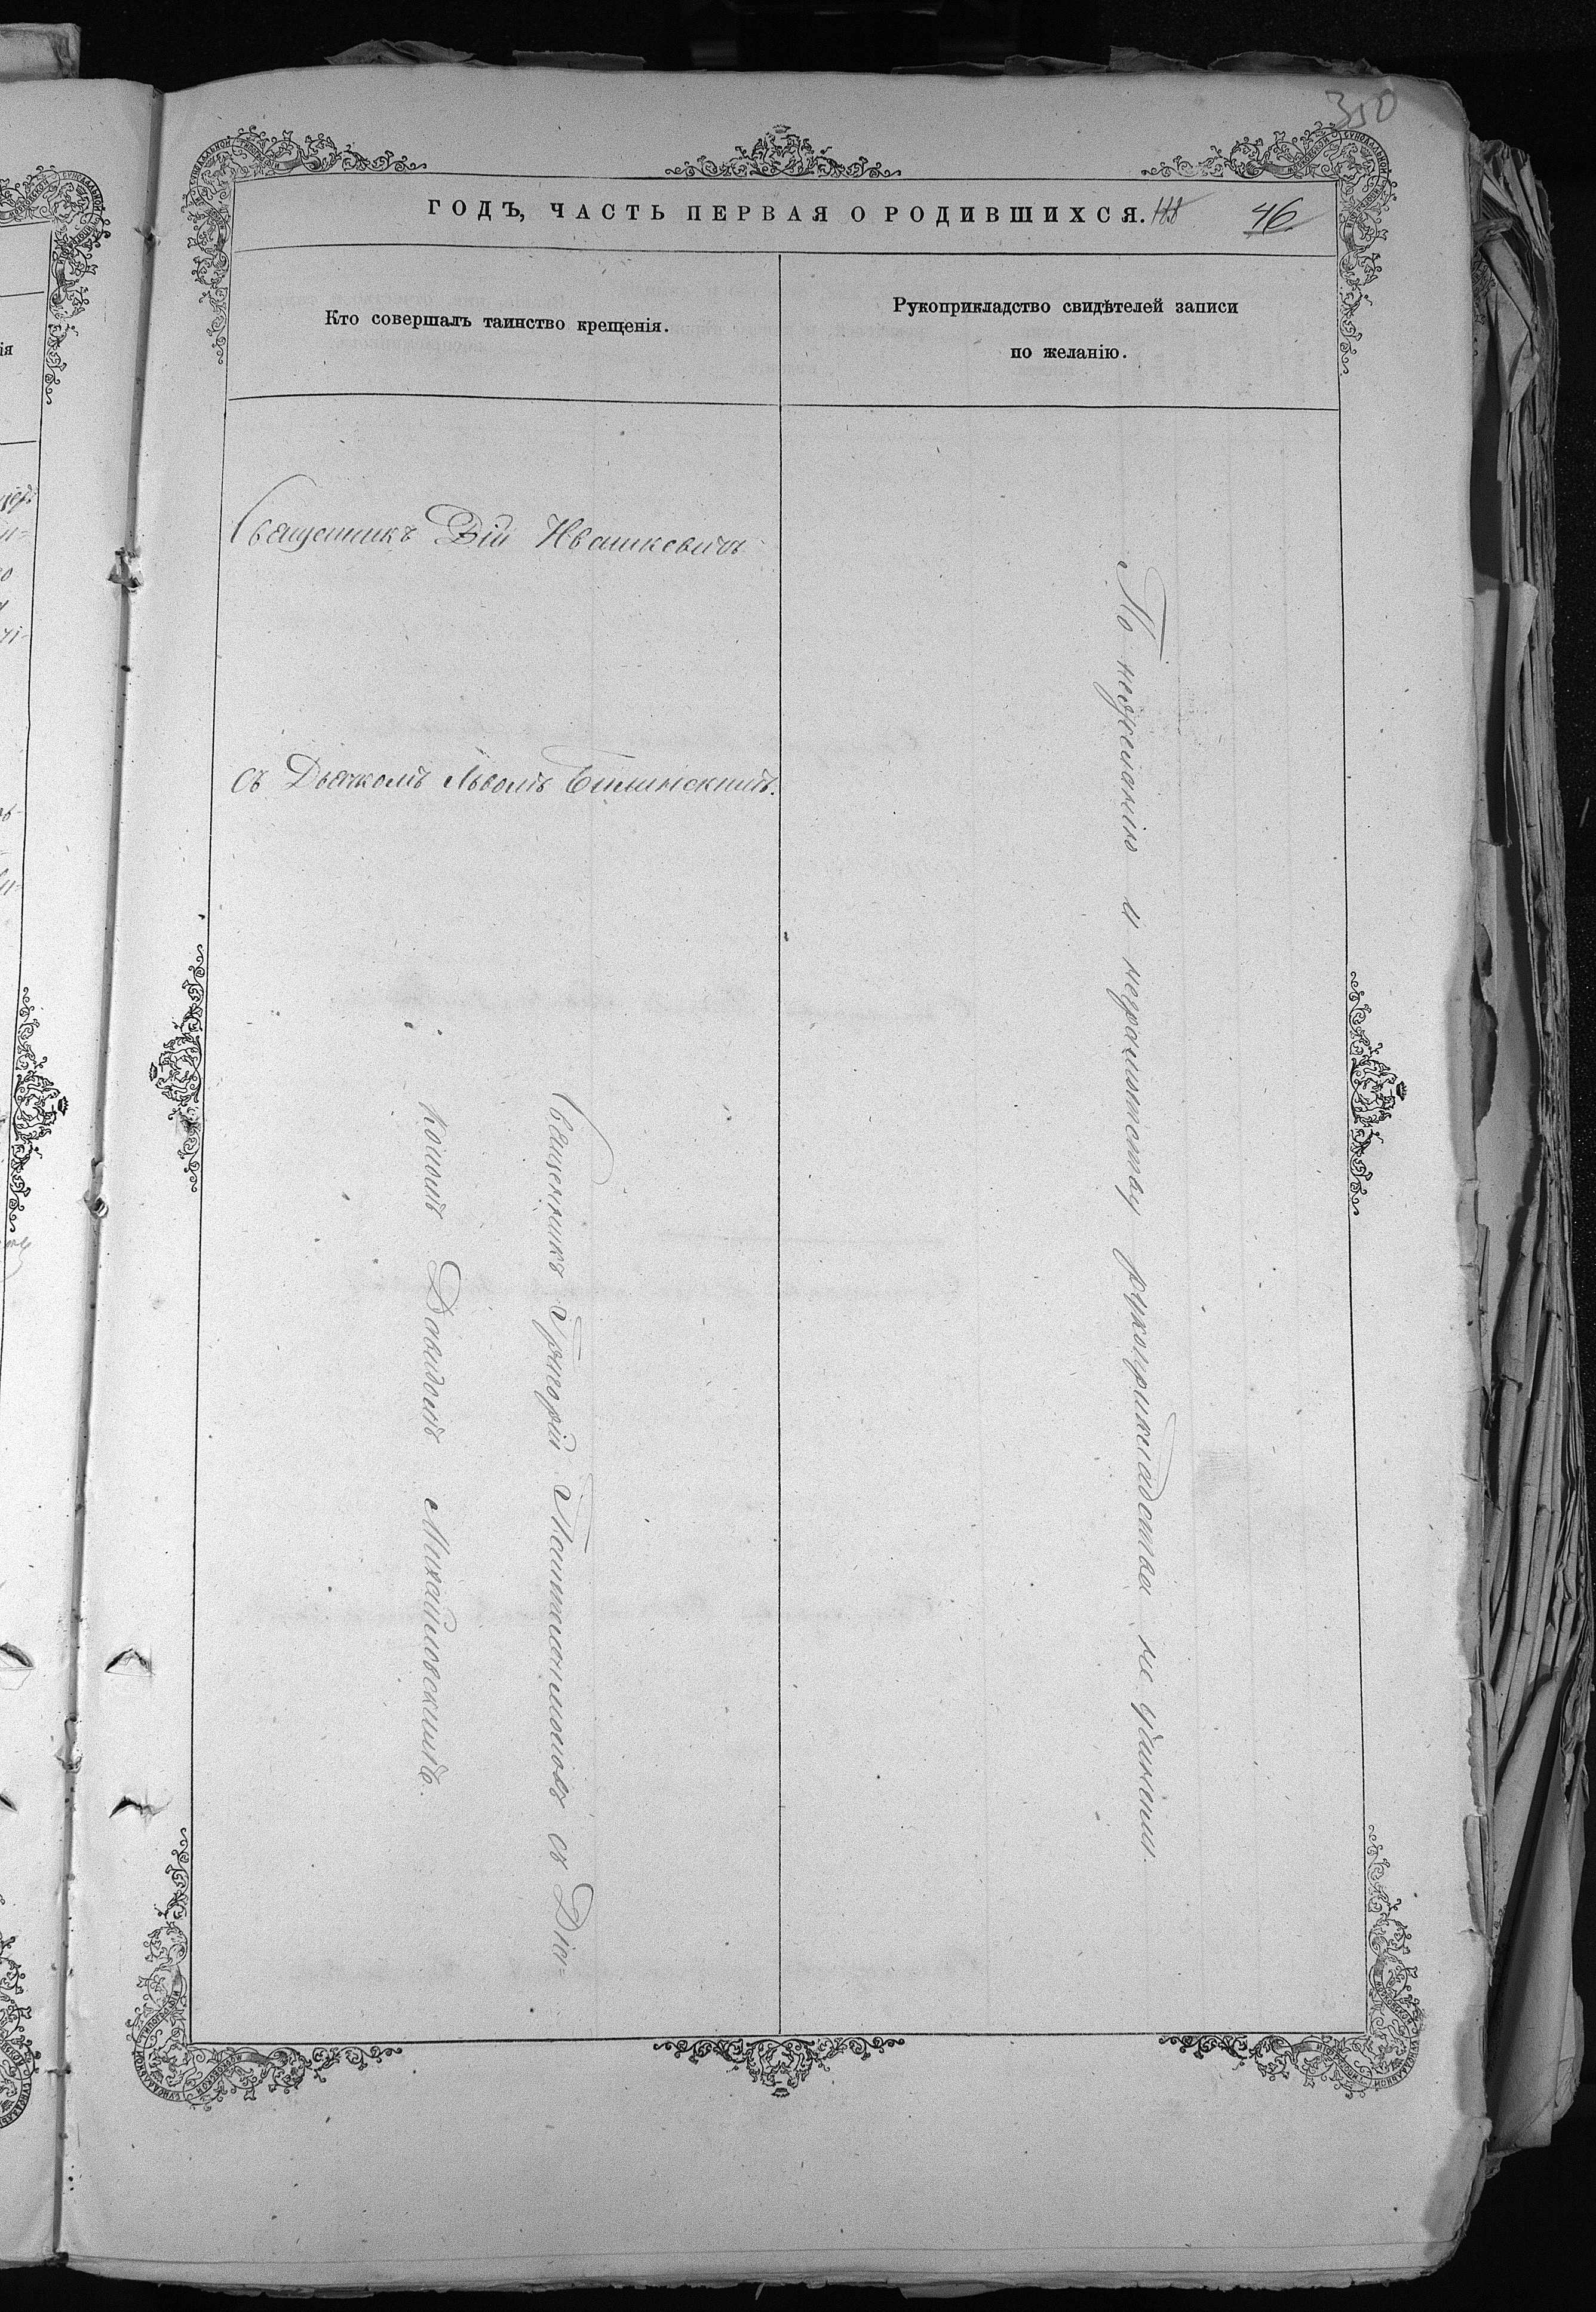 350
ГОДЪ, ЧАСТЬ ПЕРВАЯ О РОДИВШИХСЯ. 188 46
Кто совершалъ таинство крещенія.
Рукоприкладство свидѣтелей записи
по желанію.
Священникъ Дій Ивашкевичъ
съ Дьячкомъ Львомъ Билинскимъ.
Священникъ Григорій Пантелимоновъ съ Діа-
кономъ Давидомъ Михайловскимъ.
По нежеланію и неграмотству рукоприкладства не учинили.